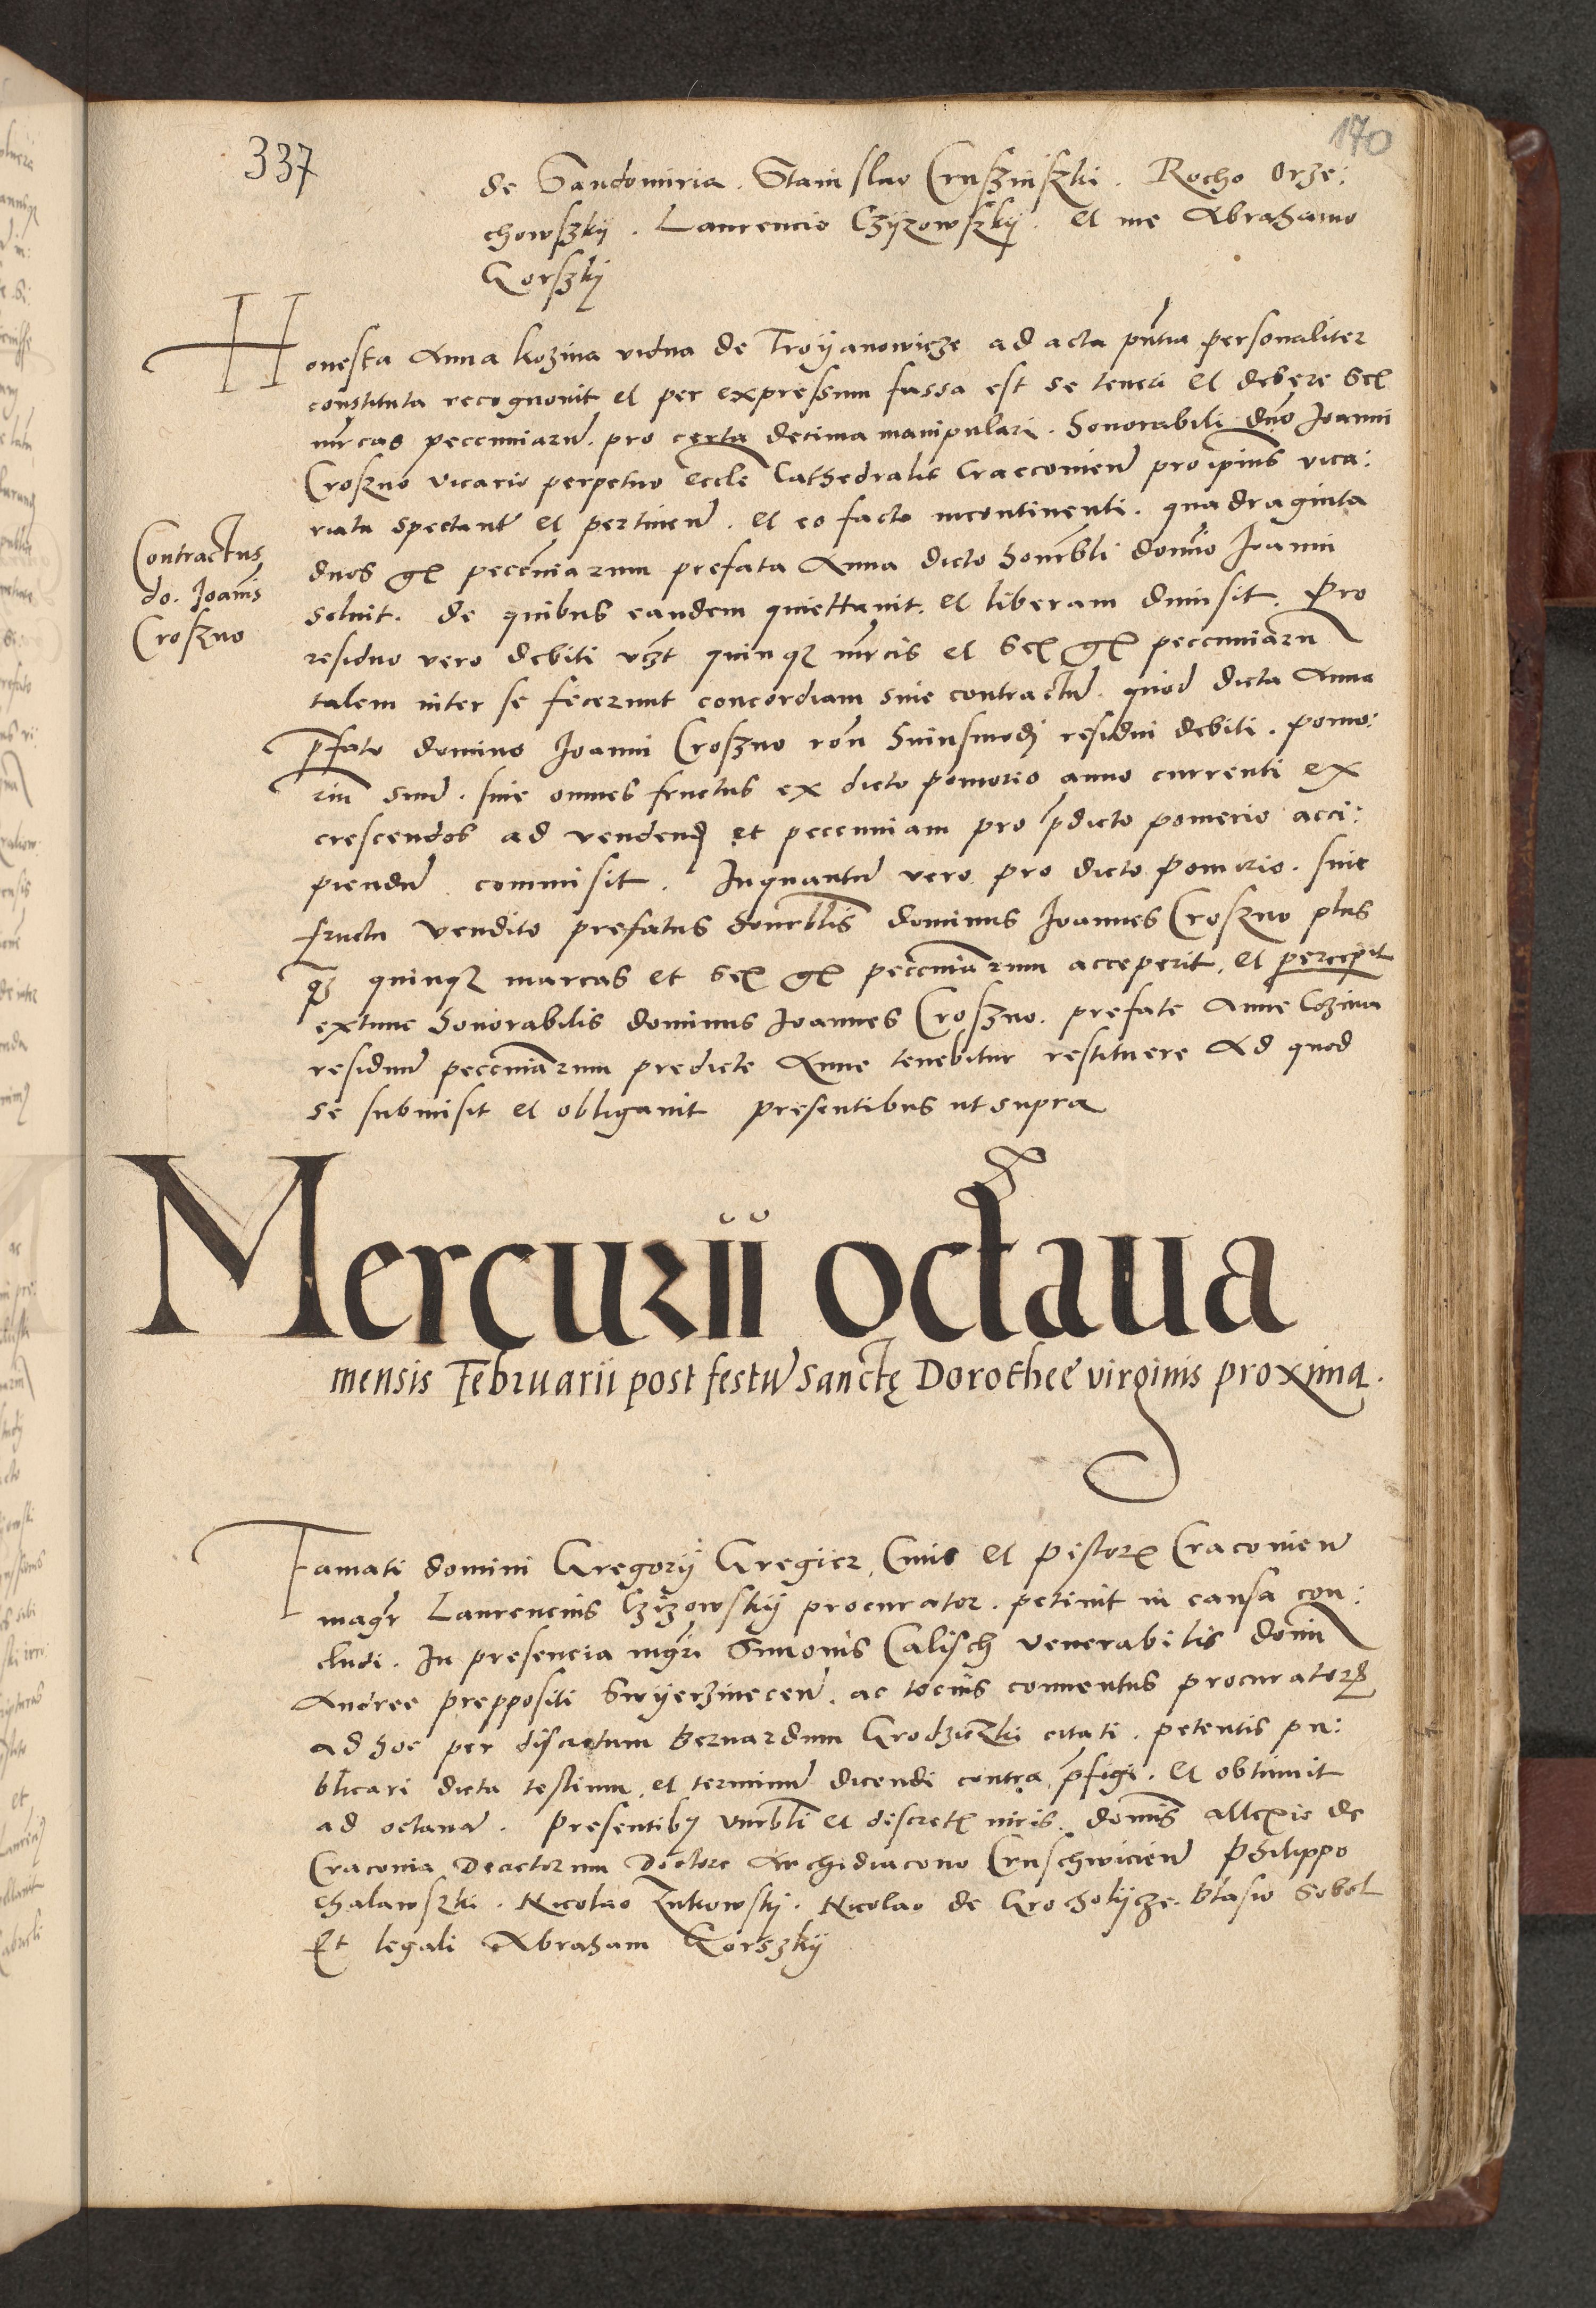 337
170
de Sandomiria. Stanislao Cruszinszki. Rocho Orze:
chowszkÿ. Laurencio Czÿzowszkÿ. et me Abrahamo
Gorszkÿ
Honesta Anna kozina vidua de Troÿanowicze ad acta pñtia personaliter
constituta recognouit et per expressum fassa est se teneri et debere sex
mrcas pecuniarũ. pro certa decima manipulari. honorabili dño Joanni
Croszno vicario perpetuo eccle Cathedralis Craccouien̄ pro ipius vica:
riatu spectantẽ et pertinen̄. et eo facto incontinenti. quadraginta
duos gr peccuniarum prefata Anna dicto honrbli domio Joanni
soluit. de quibus eandem quiettauit. et liberam dimisit. Pro
residuo vero debiti vczt quinqz mrcis et sex gr peccuniarũ
talem inter se fecerunt concordiam siue contractũ. quod dicta Anna
pfato domino Joanni Croszno rōn huiusmodj residui debiti. pomo:
riũ suũ. siue omnes fructus ex dicto pomorio anno currenti ex
crescendos ad vendend et peccuniam pro pdicto pomerio acci:
piendũ commisit. Inquantũ vero pro dicto pomerio. siue
fructu vendito prefatus honrblis dominus Joannes Croszno plus
qz quinqz marcas et sex gr peccuniarum acceperit, et perceperit
extunc honorabilis dominus Joannes Croszno. prefate Anne Cozina
residuũ peccuniarum predicte Anne tenebitur restituere Ad quod
se submisit et obligauit presentibus ut supra
Contractus
do. Joanis
Croszno
Mercurii octaua
mensis Februarii post festũ sanctę Dorotheę virginis proxima.
Famati domini Gregorÿ Gregier, Ciuis et pistorẽ Cracouien̄
magr Laurencius Czÿzowskÿ procurator. petiuit in causa con:
cludi. In presencia mgri Simonis Calisch venerabilis domi
Andree preppositi Swÿerzinecen̄. ac tocius conuentus procuratorẽ
ad hoc per discretum Bernardum Grodziczki citati. petentis pu:
blicari dicta testium, et terminũ dicendi contra pfigi. et obtinuit
ad octauã. Presentibz vnrbli et discretẽ viris. domis Allexio de
Craconia Decretorum Doctore Archidiacono Cruschwicien̄ Philippo
Chalawszki. Nicolao Zukowskj. Nicolao de Grocholÿcze. Blasio Sobol
Et legali Abraham Gorszkÿ